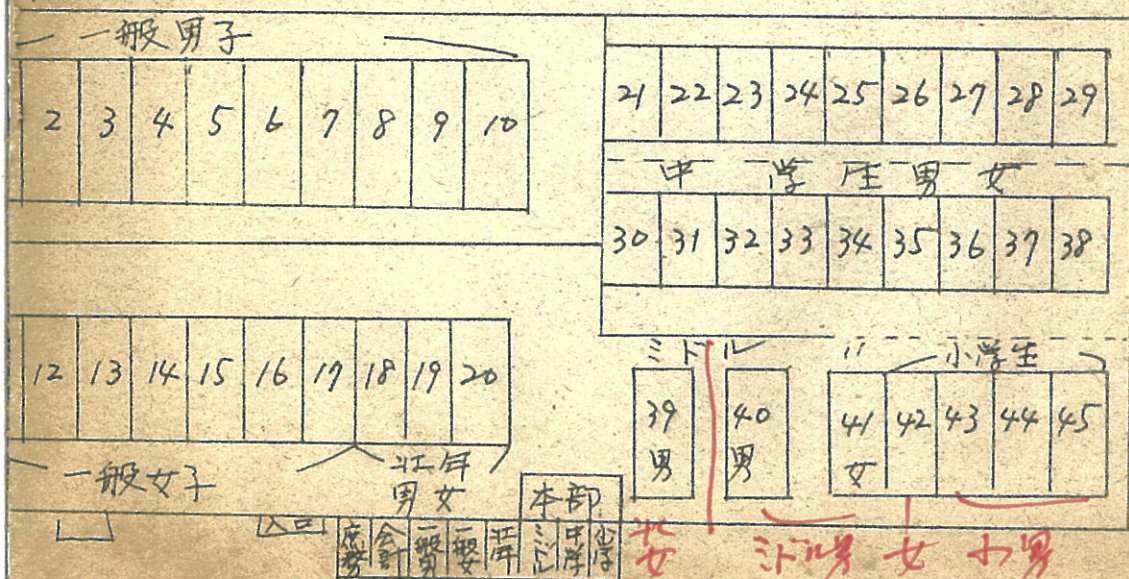 一般男子
2 3 4 5 6 7 8 9 10
21 22 23 24 25 26 27 28 29
中学生男女
30 31 32 33 34 35 36 37 38
12 13 14 15 16 17 18 19 20
一般女子
壮年
男女
ミドル
〃
小学生
39
男
40
男
41
女
42 43 44 45
入口
本部
庶務
会計
一般男
一般女
壮年
ミドル
中学
小学
壮
女
ミドル男
女
小男